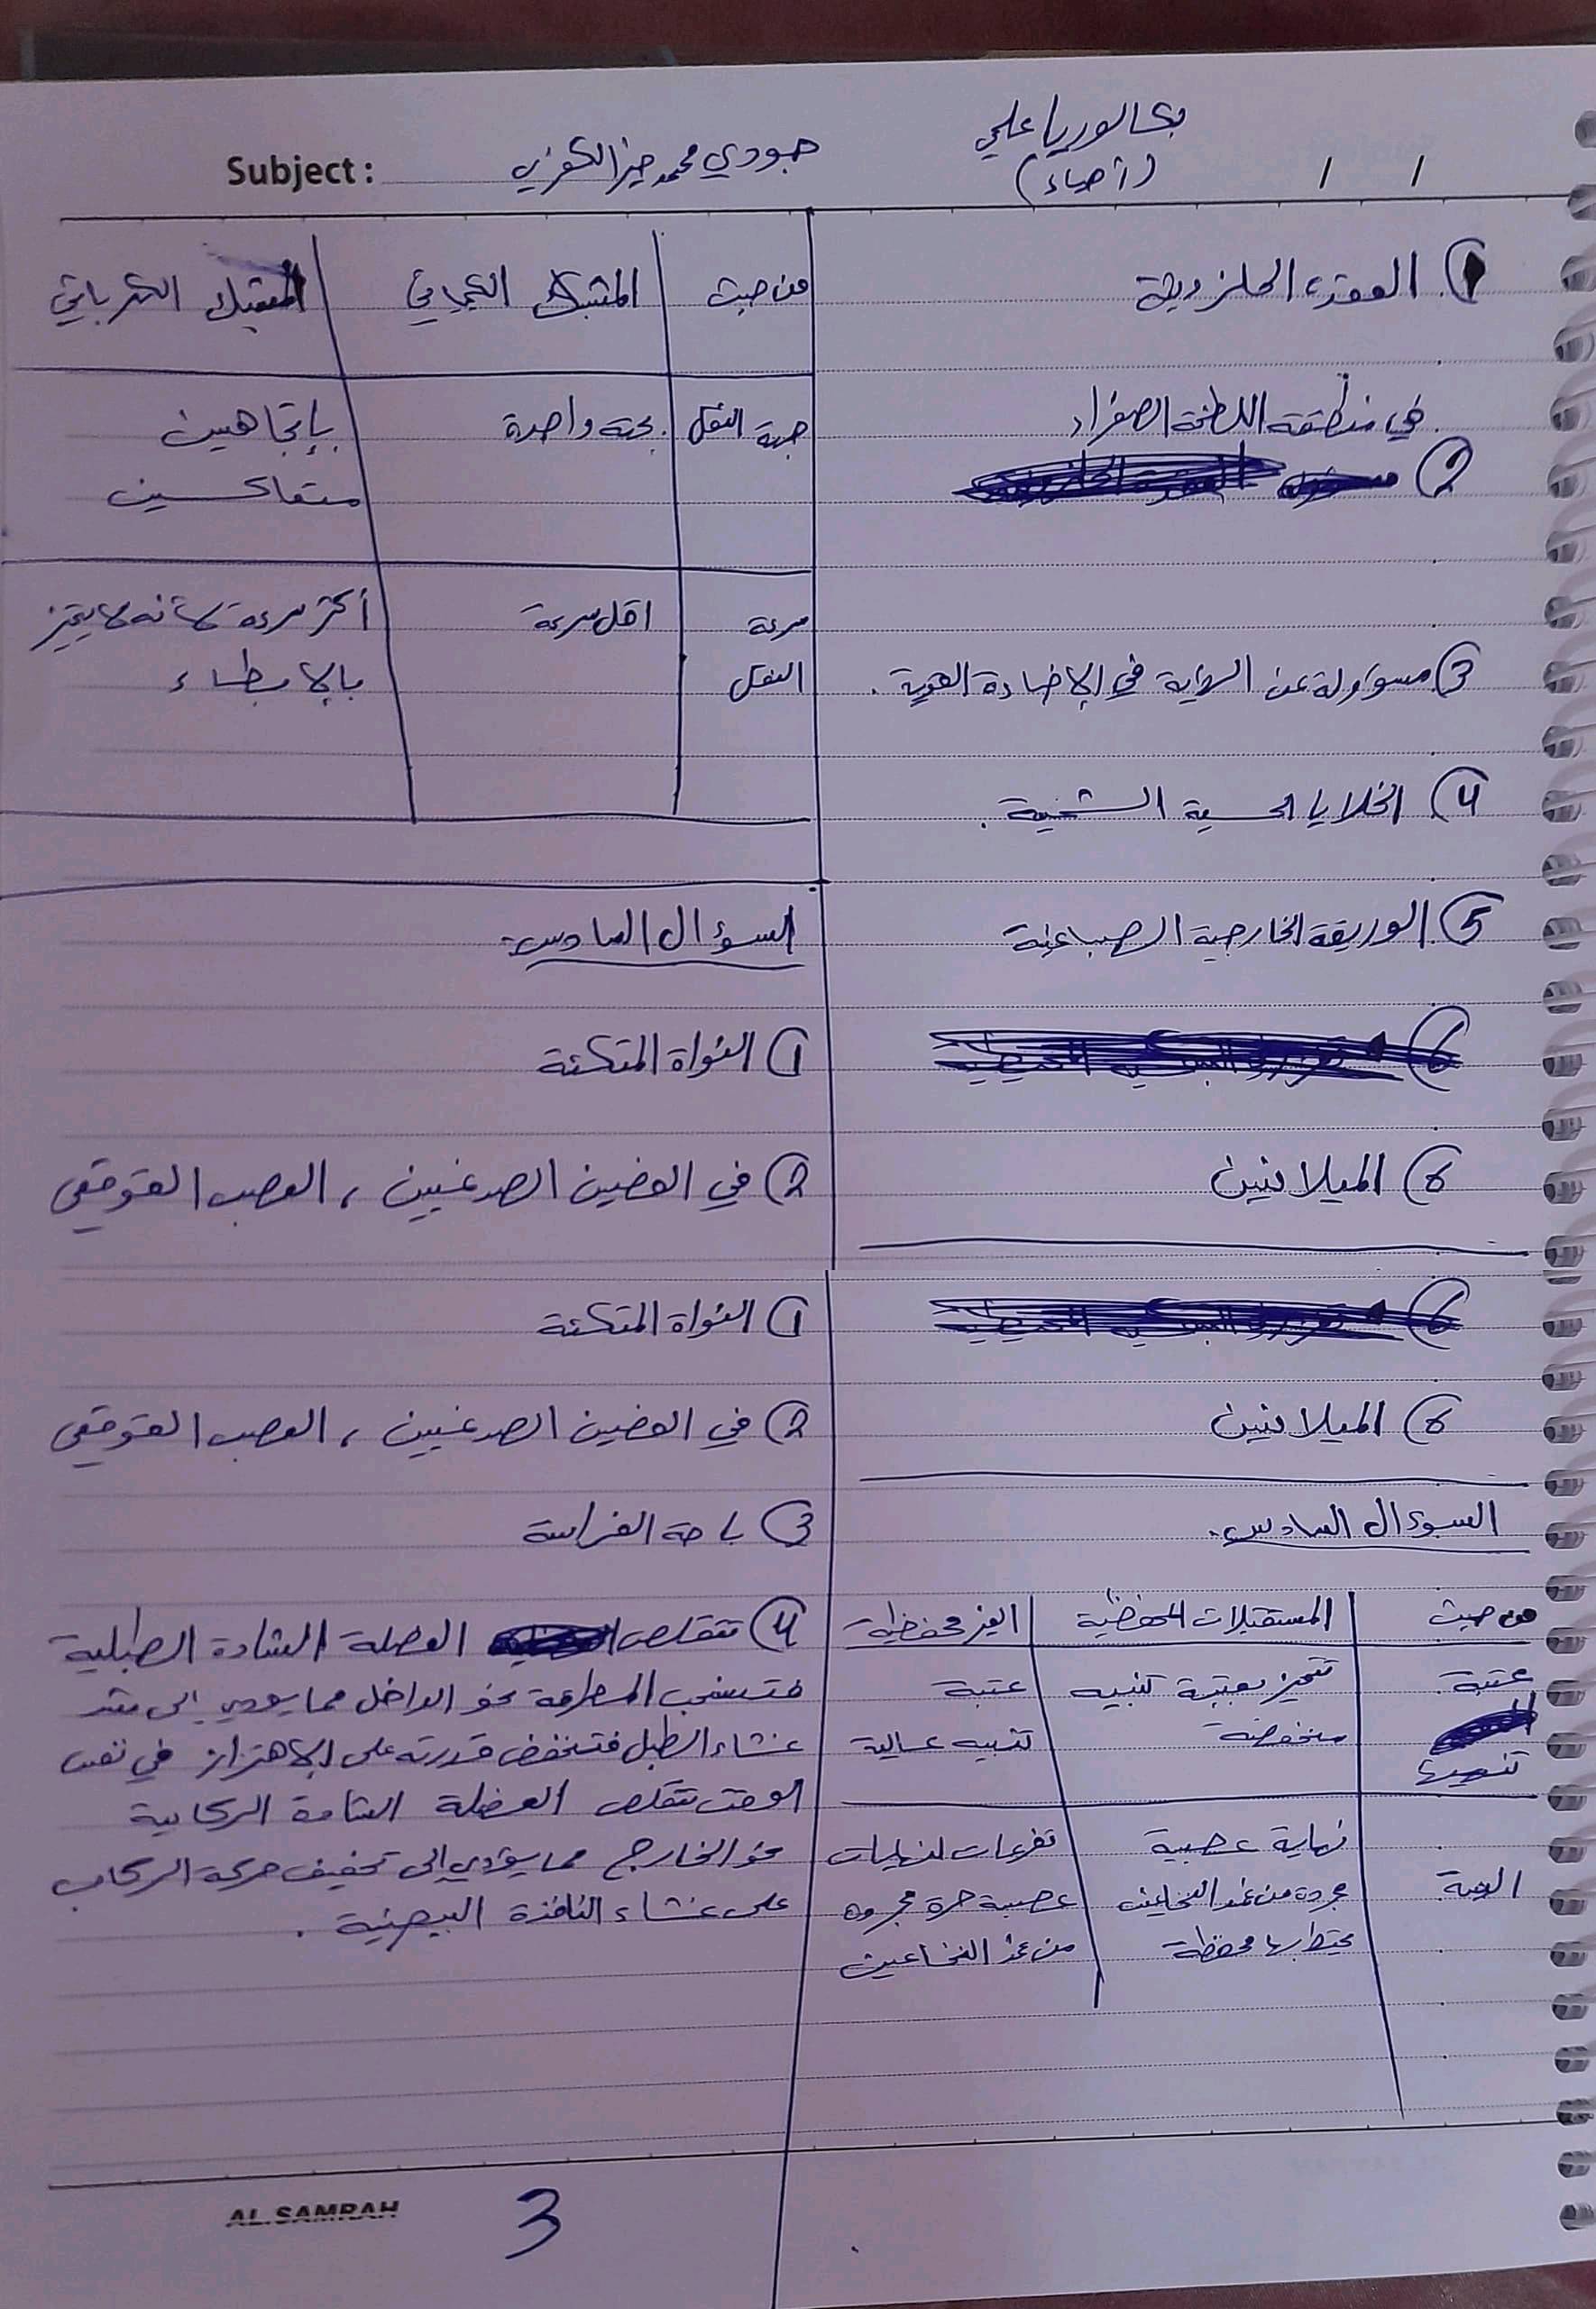 بكالوريا علمي
(أحياء)
/ /
Subject : جودي محمد خير الكفري
1 العقدة الحلزونية
2 في منطقة اللطخة الصفراء
3 مسؤولة عن الرؤية في الإضاءة القوية .
4 الخلايا الحسية الشمية .
5 الوريقة الخارجية الصباغية
6
6 الميلانين
من حيث | المشبك الكيميائي | المشبك الكهربائي
جهة النقل | بجهة واحدة | بإتجاهين
متعاكسين
سرعة | اقل سرعة | أكثر سرعة لأنه لا يتميز
النقل | بالإبطاء
السؤال السادس:
1 النواة المتكئة
2 في الفصين الصدغيين ، العصب القوقعي
6
6 الميلانين
السؤال السادس:
من حيث | المستقبلات المحفظية | الغير محفظية
عتبة | تتميز بعتبة تنبيه | عتبة
تنبيهها | منخفضة | تنبيه عالية
البنية | نهاية عصبية | تفرعات لنهايات
مجردة من غمد النخاعين | عصبية حرة مجردة
يحيط بها محفظة | من غمد النخاعين
1 النواة المتكئة
2 في الفصين الصدغيين ، العصب القوقعي
3 باحة الفراسة
4 تتقلص العضلة الشادة الطبلية
فتسحب المطرقة نحو الداخل مما يؤدي إلى شد
غشاء الطبل فتنخفض قدرته على الإهتزاز في نفس
الوقت تتقلص العضلة الشادة الركابية
نحو الخارج مما يؤدي إلى تخفيف حركة الركاب
على غشاء النافذة البيضية .
AL.SAMRAH
3